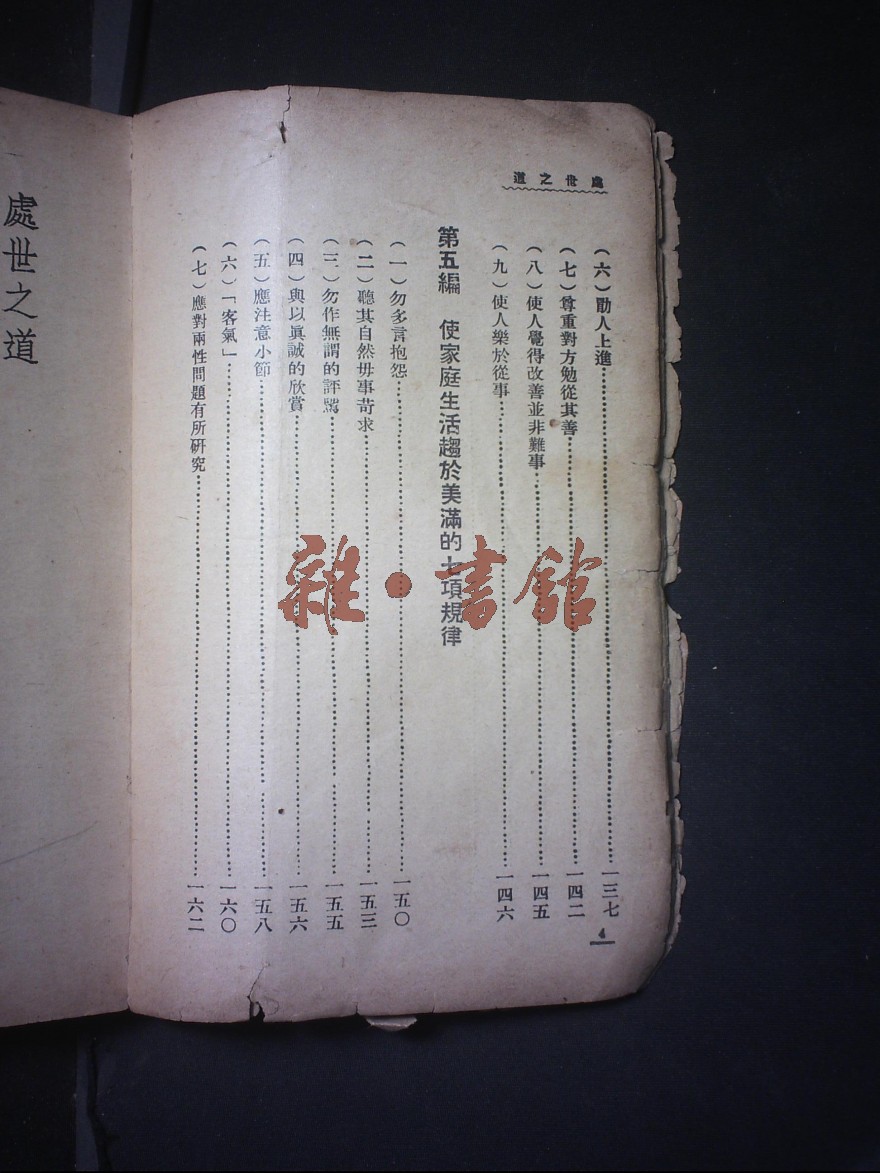 處世之道
(六)勖人上進……一三七
(七)尊重對方勉從其善……一四二
(八)使人覺得改善並非難事……一四五
(九)使人樂於從事……一四六
第五編 使家庭生活趨於美滿的七項規律
(一)勿多言抱怨……一五〇
(二)聽其自然毋事苛求……一五三
(三)勿作無謂的評騭……一五五
(四)與以眞誠的欣賞……一五六
(五)應注意小節……一五八
(六)「客氣」……一六〇
(七)應對兩性問題有所研究……一六二
4
處世之道
雜·書館